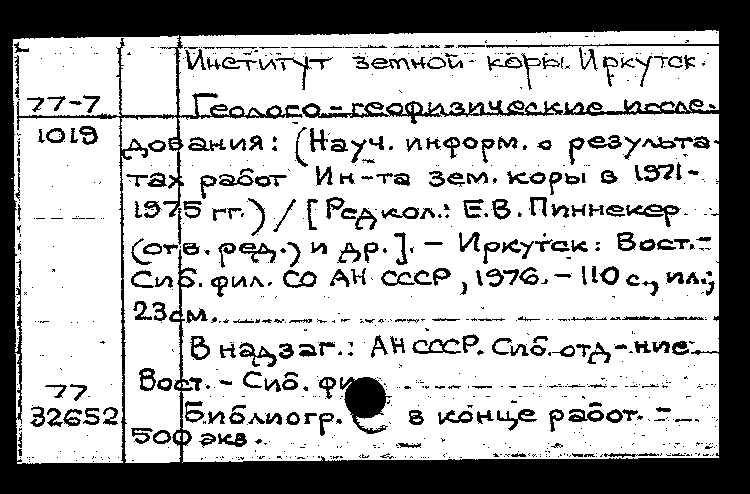 Институт земной коры. Иркутск.
77-7 Геолого-геофизические иссле-
1019 дования: (Науч. информ. о результа-
тах работ Ин-та зем. коры в 1971-
1975 гг.) / [Редкол.: Е.В. Пиннекер
(отв. ред.) и др.]. - Иркутск: Вост.-
Сиб. фил. СО АН СССР, 1976. - 110 с., ил.;
23см.
В надзаг.: АН СССР. Сиб. отд-ние.
77 Вост. - Сиб. фи
32652 Библиогр. в конце работ. -
500 экв.